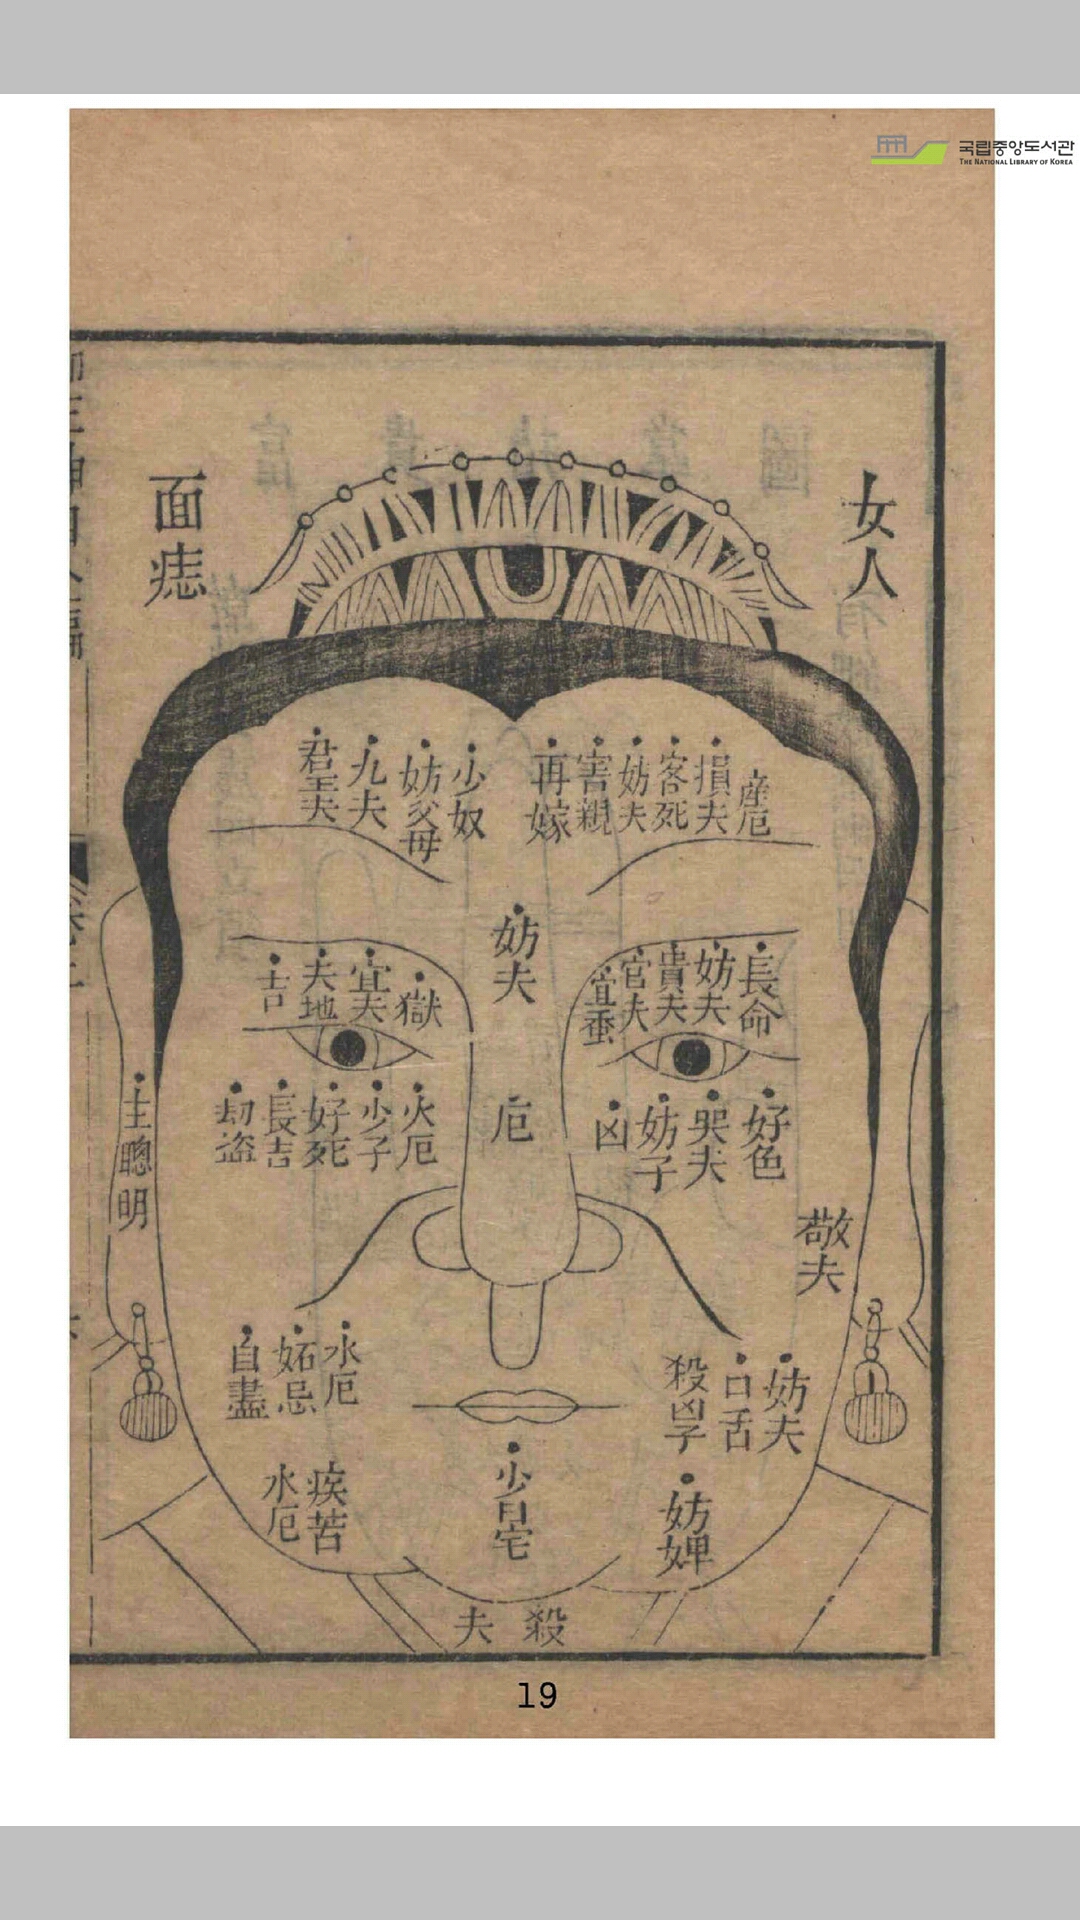 국립중앙도서관
THE NATIONAL LIBRARY OF KOREA
女人
面痣
產厄
損夫
客死
妨夫
害親
再嫁
少奴
妨父母
九夫
妨夫
長命
妨夫
貴夫
官夫
宜蚕
獄
宜夫
夫地
吉
厄
好色
哭夫
妨子
凶
火厄
少子
好死
長吉
劫盜
主聰明
敬夫
妨夫
口舌
殺凶子
水厄
妬忌
自盡
妨婢
少田宅
疾苦
水厄
殺夫
19